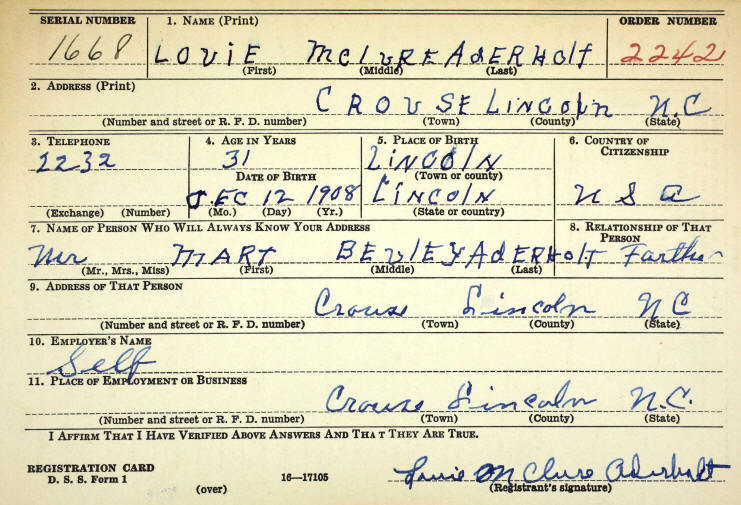 SERIAL NUMBER 1. NAME (Print) ORDER NUMBER
1668 LOUIE MCLURE ADERHOLT 2242
(First) (Middle) (Last)
2. ADDRESS (Print)
CROUSE LINCOLN N.C
(Number and street or R. F. D. number) (Town) (County) (State)
3. TELEPHONE 4. AGE IN YEARS 5. PLACE OF BIRTH 6. COUNTRY OF CITIZENSHIP
2232 31 LINCOLN
(Town or county)
DATE OF BIRTH
DEC 12 1908 LINCOLN U S A
(Exchange) (Number) (Mo.) (Day) (Yr.) (State or country)
7. NAME OF PERSON WHO WILL ALWAYS KNOW YOUR ADDRESS 8. RELATIONSHIP OF THAT PERSON
Mr MART ADERHOLT Farther
(Mr., Mrs., Miss) (First) (Middle) (Last)
9. ADDRESS OF THAT PERSON
Crouse Lincoln NC
(Number and street or R. F. D. number) (Town) (County) (State)
10. EMPLOYER'S NAME
Self
11. PLACE OF EMPLOYMENT OR BUSINESS
Crouse Lincoln N.C.
(Number and street or R. F. D. number) (Town) (County) (State)
I AFFIRM THAT I HAVE VERIFIED ABOVE ANSWERS AND THAT THEY ARE TRUE.
REGISTRATION CARD
D. S. S. Form 1 16—17105 Louie McClure Aderholt
(over) (Registrant's signature)